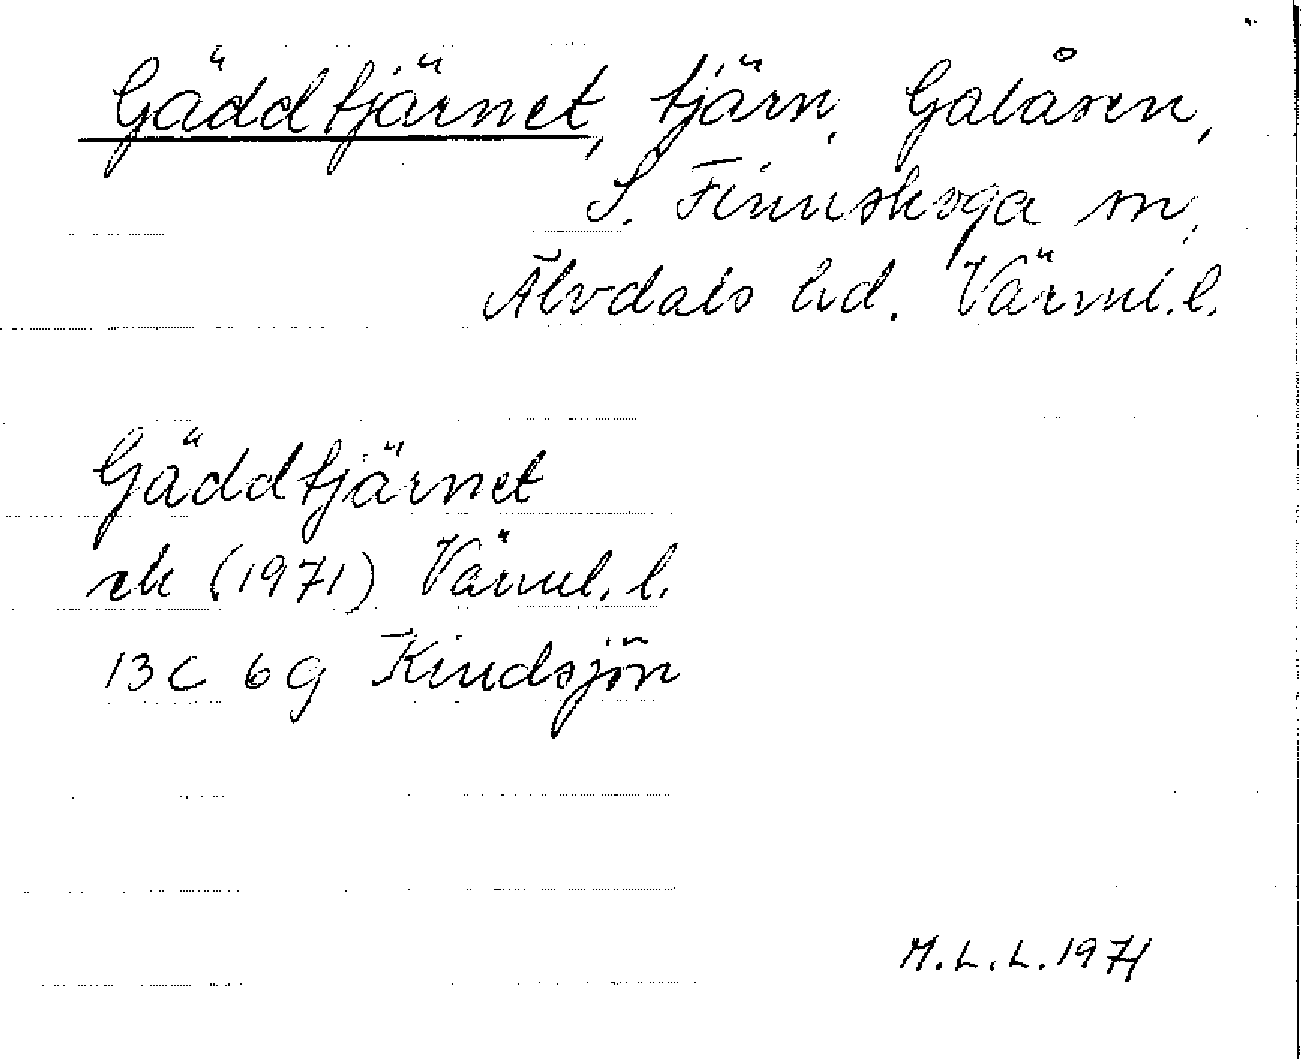 Gäddtjärnet, tjärn, Galåsen,
S. Finnskoga sn,
Älvdals hd. Värml. l.
Gäddtjärnet
ek (1971) Värml. l.
13C 6g Kindsjön
M.L.L. 1971